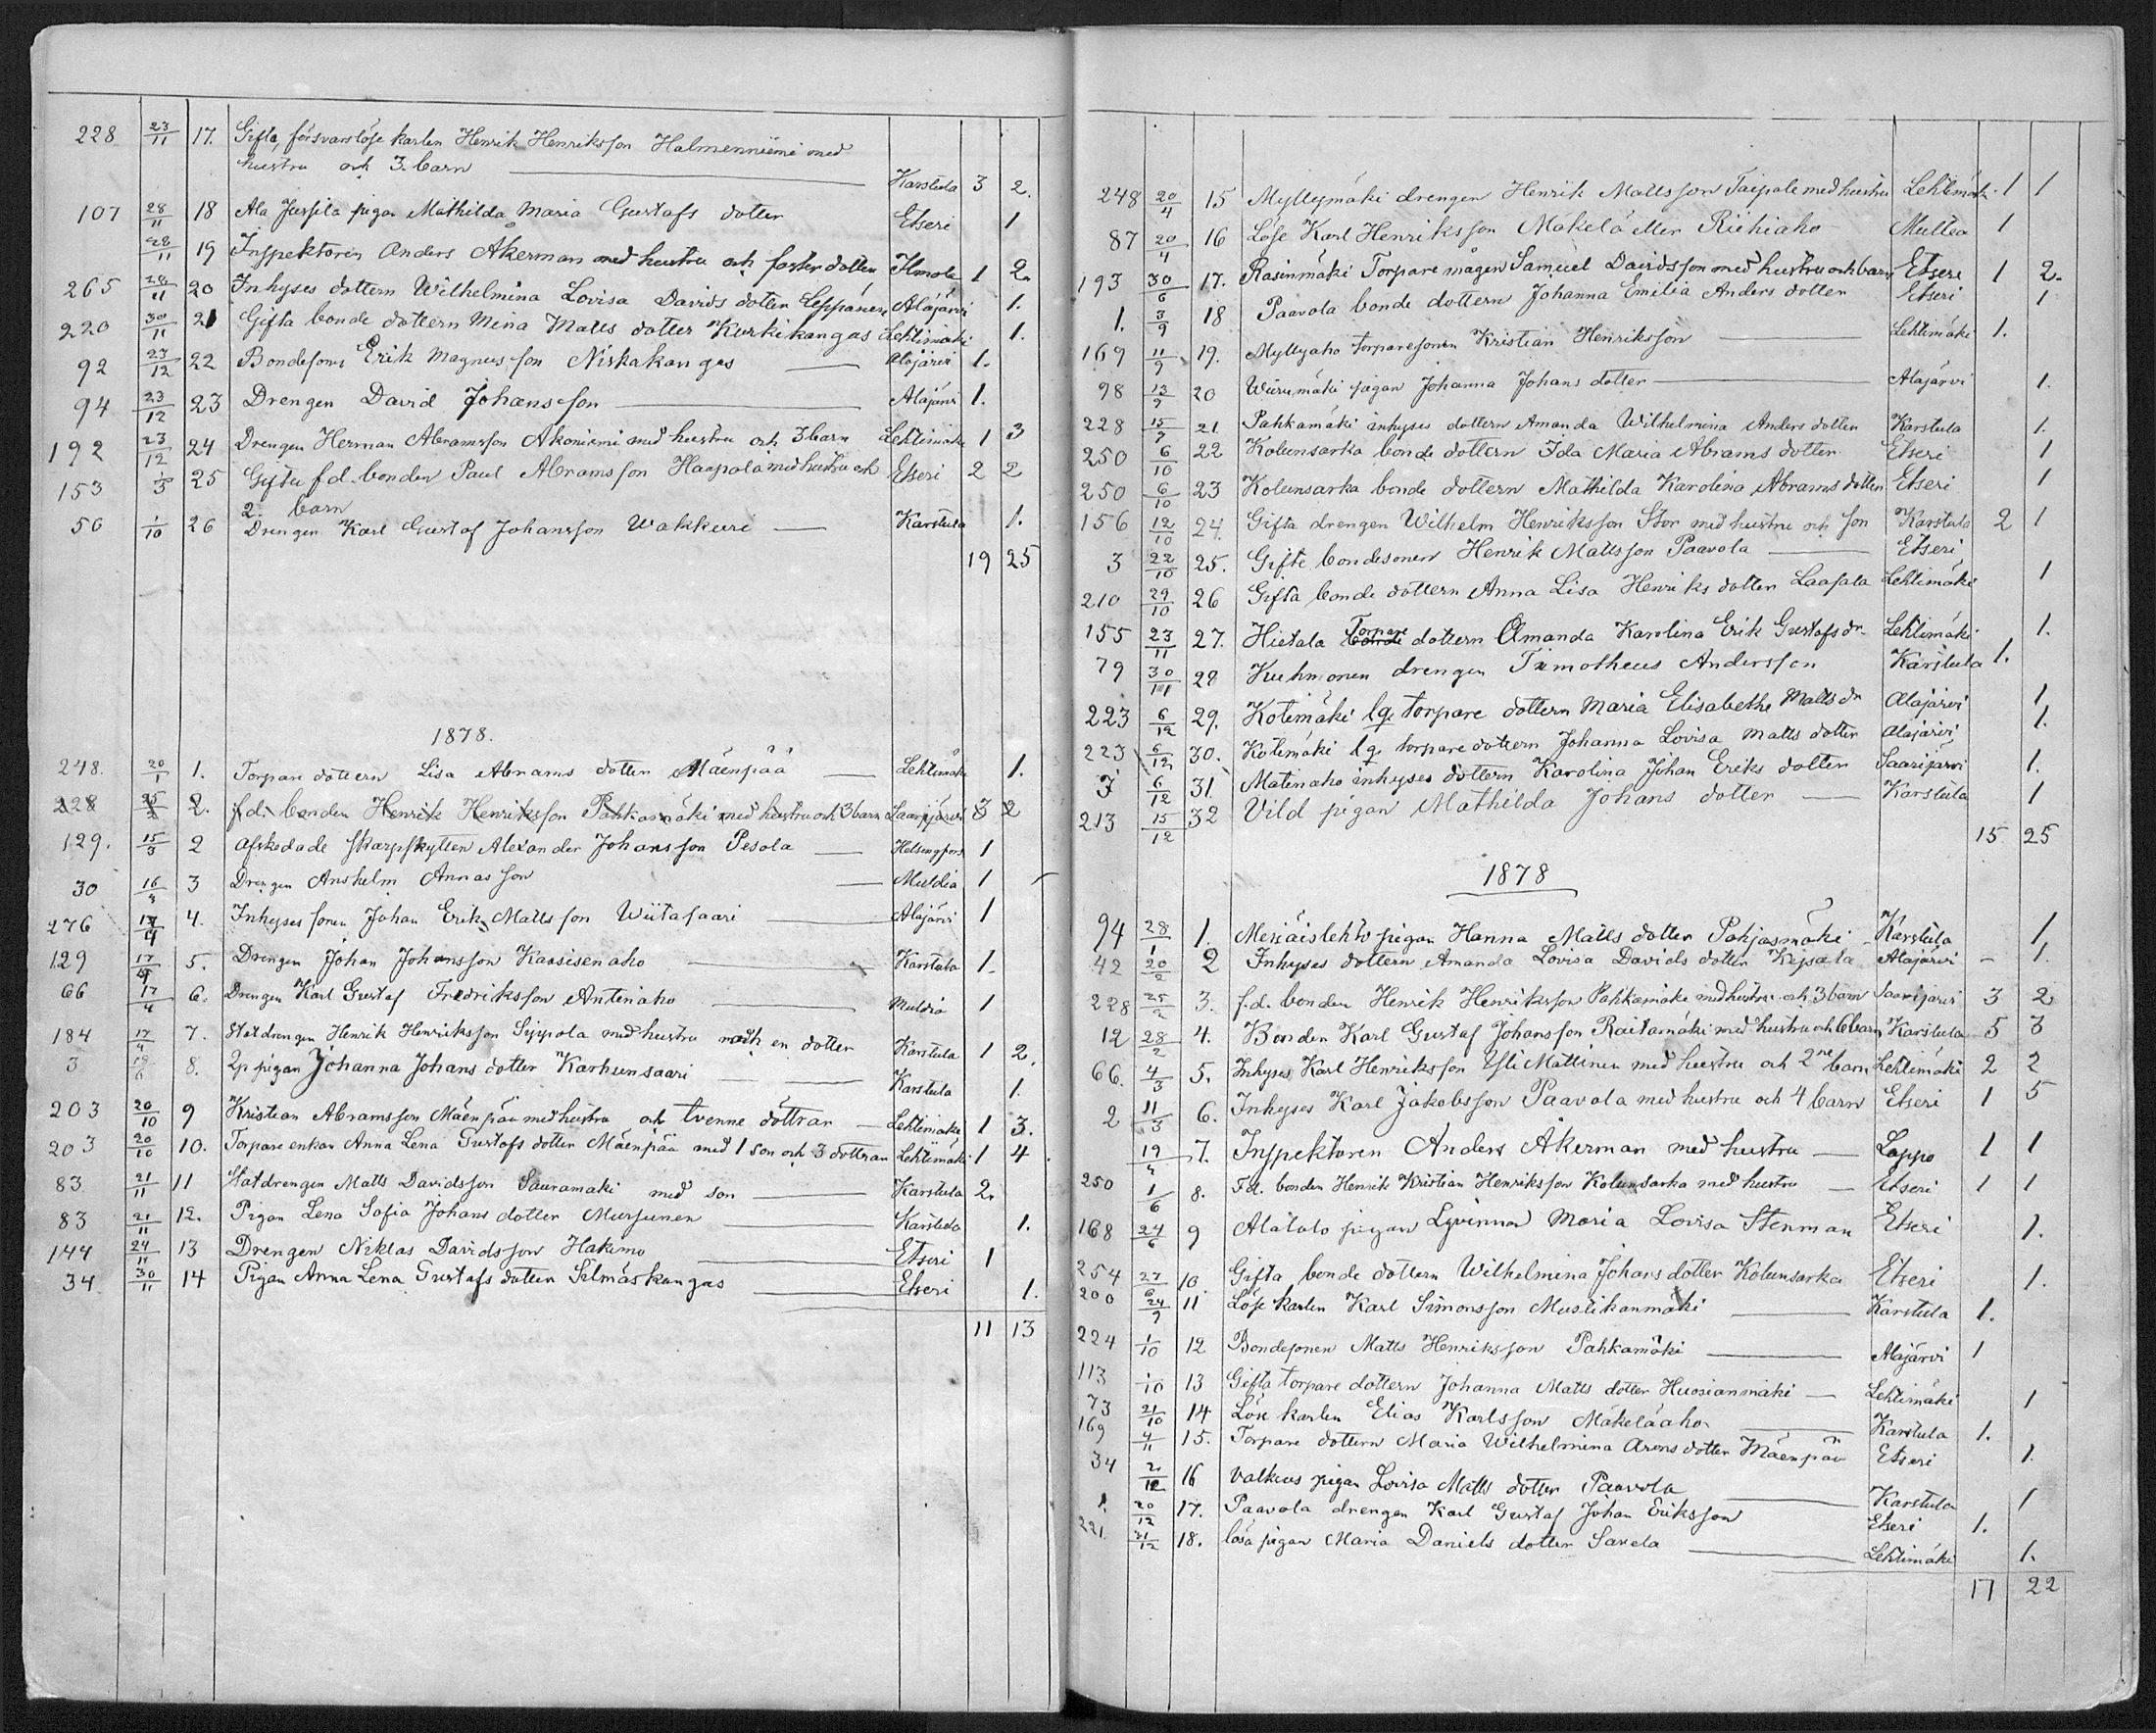 228 23/11 17. Gifta, försvarslöse karlen Henrik Henriksson Halmenniemi med
hustru och 3. barn Karstula 3 2.
107 28/11 18 Ala Jussila pigan Mathilda Maria Gustafs dotter Etseri 1
28/11 19 Inspektoren Anders Åkerman med hustru och foster dotter Ilmola 1 2.
265 28/11 20 Inhyses dottern Wilhelmina Lovisa Davids dotter Leppänen Alajärvi 1.
220 30/11 21 Gifta bonde dottern Mina Matts dotter Kurkikangas Lehtimäki 1.
92 23/12 22 Bondesonen Erik Magnusson Niskakangas Alajärvi 1.
94 23/12 23 Drengen David Johansson Alajärvi 1.
192 23/12 24 Drengen Herman Abramsson Akoniemi med hustru och 3 barn Lehtimäki 1 3
153 1/3 25 Gifta f.d. bonden Paul Abramsson Haapala med hustru och Etseri 2 2
2. barn
50 1/10 26 Drengen Karl Gustaf Johansson Wakkuri Karstula 1.
19 25
1878.
248. 20/1 1. Torpare dottern Lisa Abrams dotter Mäenpää Lehtimäki 1.
228 25/2 2. f.d. bonden Henrik Henriksson Pahkamäki med hustru och 3 barn Saarijärvi 3 2
129. 15/3 2 Afskedade Skarpskytten Alexander Johansson Pesola Helsingfors 1
30 16/3 3 Drengen Anshelm Annasson Muldia 1
276 17/4 4. Inhyses sonen Johan Erik Mattsson Wiitasaari Alajärvi 1
129 17/4 5. Drengen Johan Johansson Kaasisenaho Karstula 1.
66 17/4 6. Drengen Karl Gustaf Fredriksson Antinaho Muldia 1
184 17/4 7. Statdrengen Henrik Henriksson Sippola med hustru och en dotter Karstula 1 2.
3 19/6 8. Lp pigan Johanna Johans dotter Karhunsaari Karstula 1.
203 20/10 9 Kristian Abramsson Mäenpää med hustru och tvenne döttrar Lehtimäki 1 3.
203 20/10 10. Torpare enkan Anna Lena Gustafs dotter Mäenpää med 1 son och 3 döttrar Lehtimäki 1 4
83 21/11 11 Statdrengen Matts Davidsson Sauramäki med son Karstula 2.
83 21/11 12. Pigan Lena Sofia Johans dotter Mursunen Karstula 1.
144 24/11 13 Drengen Niklas Davidsson Hakomo Etseri 1
34 30/11 14 Pigan Anna Lena Gustafs dotter Silmäskangas Etseri 1.
11 13
248 20/4 15 Myllymäki drengen Henrik Mattsson Taipale med hustru Lehtimäki 1 1
87 20/4 16 Löse Karl Henriksson Mäkelä eller Riihiaho Multea 1
193 30/6 17. Rasinmäki Torpare mågen Samuel Davidsson med hustru och barn Etseri 1 2.
1. 3/9 18 Paavola bonde dottern Johanna Emilia Anders dotter Etseri 1
169 11/9 19. Myllyaho torparesonen Kristian Henriksson Lehtimäki 1.
98 13/9 20 Wiirumäki pigan Johanna Johans dotter Alajärvi 1.
228 15/9 21 Pahkamäki inhyses dottern Amanda Wilhelmina Anders dotter Karstula 1.
250 6/10 22 Kolunsarka bonde dottern Ida Maria Abrams dotter Etseri 1
250 6/10 23 Kolunsarka bonde dottern Mathilda Karolina Abrams dotter Etseri 1
156 12/10 24. Gifta drengen Wilhelm Henriksson Stor med hustru och son Karstula 2 1
3 22/10 25. Gifte bondesonen Henrik Mattsson Paavola Etseri
210 29/10 26 Gifta bonde dottern Anna Lisa Henriks dotter Laasala Lehtimäki 1
155 23/11 27. Hietala bonde Torpare dottern Amanda Karolina Erik Gustafs dr Lehtimäki 1.
79 30/11 28 Kuhmonen drengen Timotheus Andersson Karstula 1.
223 6/12 29. Kotimäki lg. torpare dottern Maria Elisabethe Matts dr Alajärvi 1
223 6/12 30. Kotimäki lg. torpare dottern Johanna Lovisa Matts dotter Alajärvi 1.
7 6/12 31. Matinaho inhyses dottern Karolina Johan Eriks dotter Saarijärvi 1.
213 15/12 32 Vild pigan Mathilda Johans dotter Karstula 1
15 25
1878
94 28/1 1. Meriäislehto pigan Hanna Matts dotter Pohjasmäki Karstula 1
42 20/2 2 Inhyses dottern Amanda Lovisa Davids dotter Kejsala Alajärvi - 1.
228 25/2 3. f.d. bonden Henrik Henriksson Pahkamäki med hustru och 3 barn Saarijärvi 3 2
12 28/2 4. Bonden Karl Gustaf Johansson Raitamäki med hustru och 6 barn Karstula 5 3
66. 4/3 5. Inhyses Karl Henriksson Yli Mattinen med hustru och 2ne barn Lehtimäki 2 2
2 11/3 6. Inhyses Karl Jakobsson Paavola med hustru och 4 barn Etseri 1 5
19/4 7. Inspektoren Anders Åkerman med hustru Lappo 1 1
250 1/6 8. F.d. bonden Henrik Kristian Henriksson Kolunsarka med hustru Etseri 1 1
168 24/6 9 Alatalo pigan Qvinnan Maria Lovisa Stenman Etseri 1.
254 27/6 10 Gifta bonde dottern Wilhelmina Johans dotter Kolunsarka Etseri 1.
200 24/9 11 Löse karlen Karl Simonsson Mustikanmäki Karstula 1.
224 1/10 12 Bondesonen Matts Henriksson Pahkamäki Alajärvi 1
113 1/10 13 Gifta torpare dottern Johanna Matts dotter Huosianmäki Lehtimäki 1
73 21/10 14 Löse karlen Elias Karlsson Mäkeläaho Karstula 1.
169 4/11 15. Torpare dottern Maria Wilhelmina Arons dotter Mäenpää Etseri 1.
34 2/12 16 Valkeus pigan Lovisa Matts dotter Paavola Karstula 1
1. 20/12 17. Paavola drengen Karl Gustaf Johan Eriksson Etseri 1.
221. 31/12 18. lösa pigan Maria Daniels dotter Savela Lehtimäki 1.
17 22